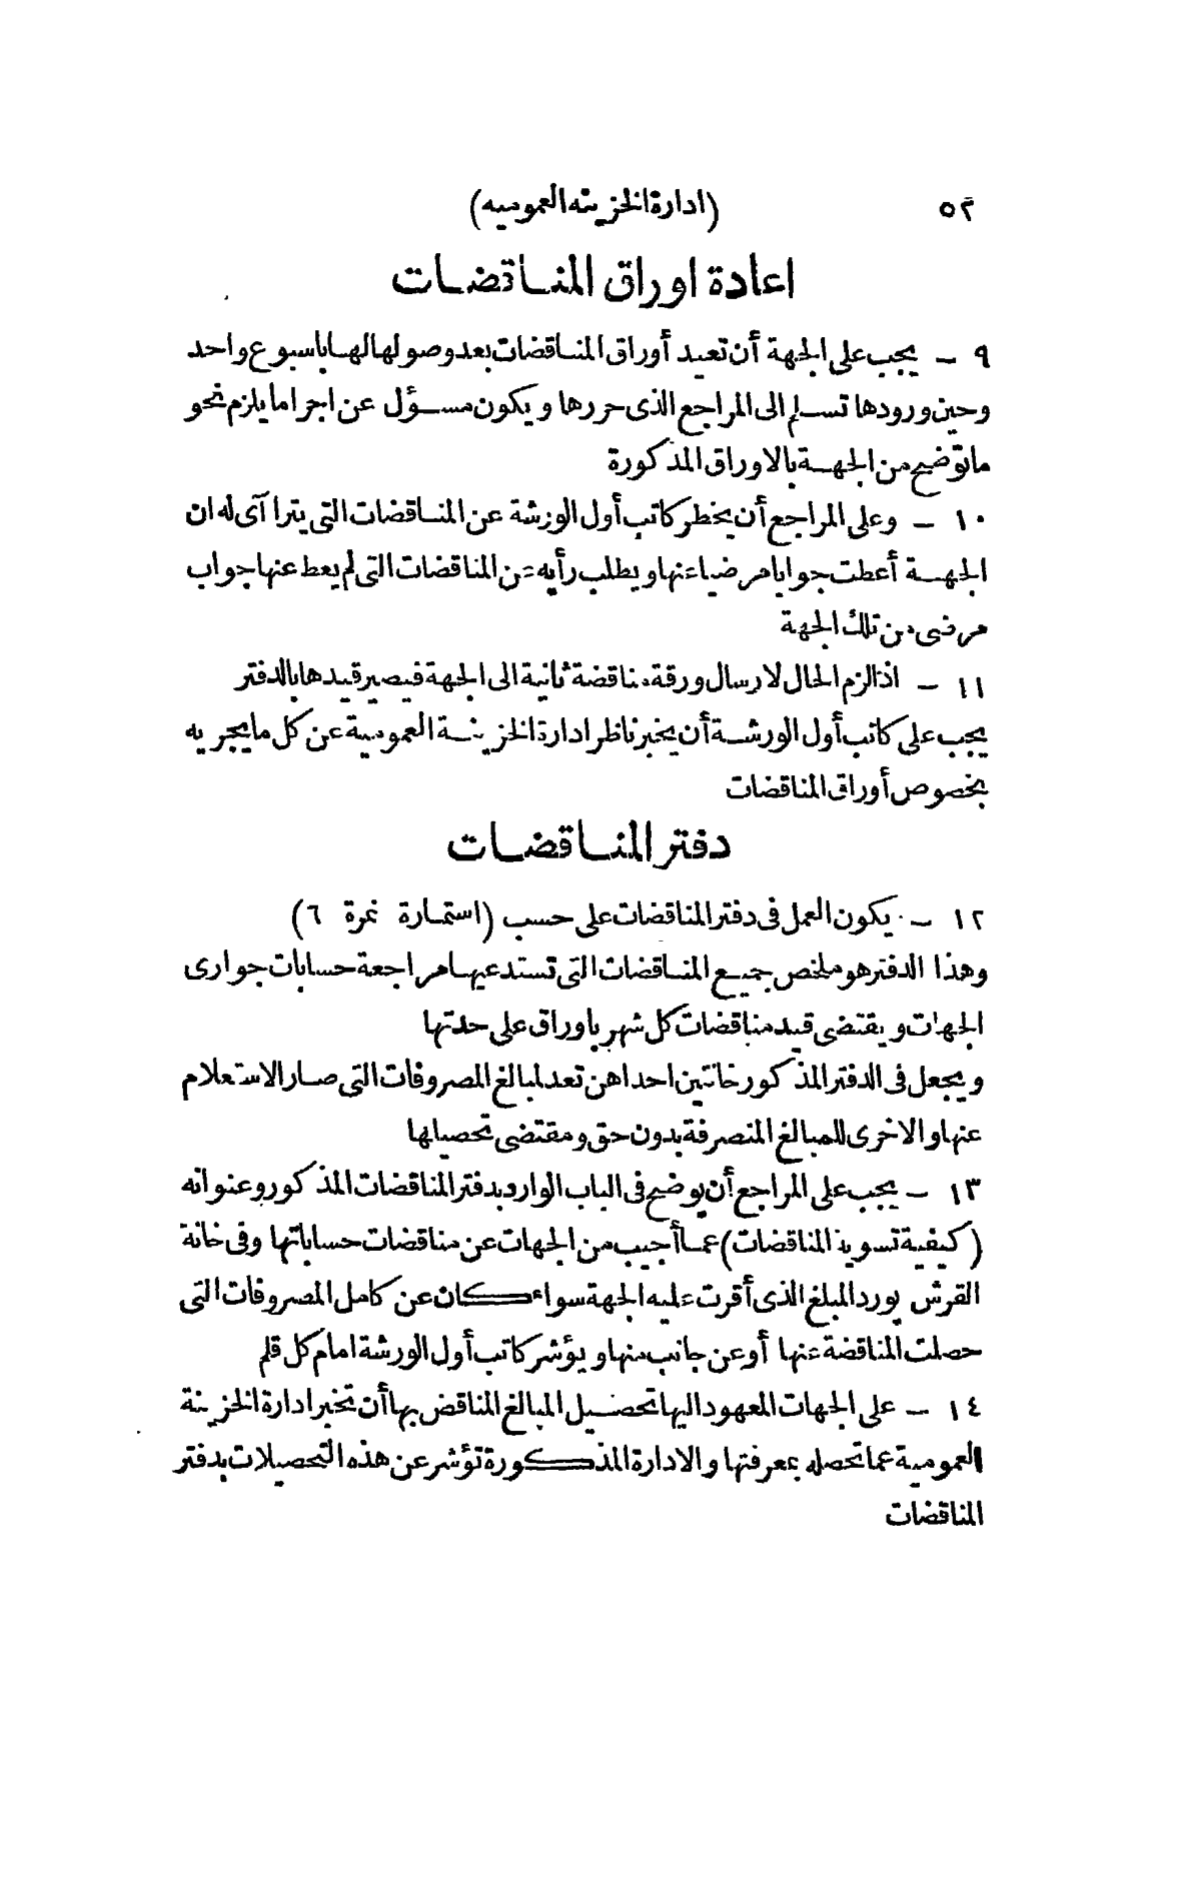 ٥٢ (ادارة الخزينه العموميه)
اعادة اوراق المناقضات
٩ – يجب على الجهة أن تعيد أوراق المناقضات بعد وصولها لها باسبوع واحد
وحين ورودها تسلم الى المراجع الذى حررها ويكون مسؤل عن اجرا ما يلزم نحو
ما توضح من الجهة بالاوراق المذكورة
١٠ – وعلى المراجع أن يخطر كاتب أول الورشة عن المناقضات التى يترا آى له ان
الجهة أعطت جوابا مرضيا عنها ويطلب رأيه عن المناقضات التى لم يعط عنها جواب
مرضى من تلك الجهة
١١ – اذا لزم الحال لارسال ورقة مناقضة ثانية الى الجهة فيصير قيدها بالدفتر
يجب على كاتب أول الورشة أن يخبر ناظر ادارة الخزينة العمومية عن كل ما يجريه
بخصوص أوراق المناقضات
دفتر المناقضات
١٢ – يكون العمل فى دفتر المناقضات على حسب (استمارة نمرة ٦)
وهذا الدفتر هو ملخص جميع المناقضات التى تستدعيها مراجعة حسابات جوارى
الجهات ويقتضى قيد مناقضات كل شهر باوراق على حدتها
ويجعل فى الدفتر المذكور خانتين احداهن تعد لمبالغ المصروفات التى صار الاستعلام
عنها والاخرى للمبالغ المنصرفة بدون حق ومقتضى تحصيلها
١٣ – يجب على المراجع أن يوضح فى الباب الوارد بدفتر المناقضات المذكور وعنوانه
(كيفية تسوية المناقضات) عما أجيب من الجهات عن مناقضات حساباتها وفى خانة
القرش يورد المبلغ الذى أقرت عليه الجهة سواء كان عن كامل المصروفات التى
حصلت المناقضة عنها أو عن جانب منها ويؤشر كاتب أول الورشة امام كل قلم
١٤ – على الجهات المعهود اليها تحصيل المبالغ المناقض بها أن تخبر ادارة الخزينة
العمومية عما تحصله بمعرفتها والادارة المذكورة تؤشر عن هذه التحصيلات بدفتر
المناقضات